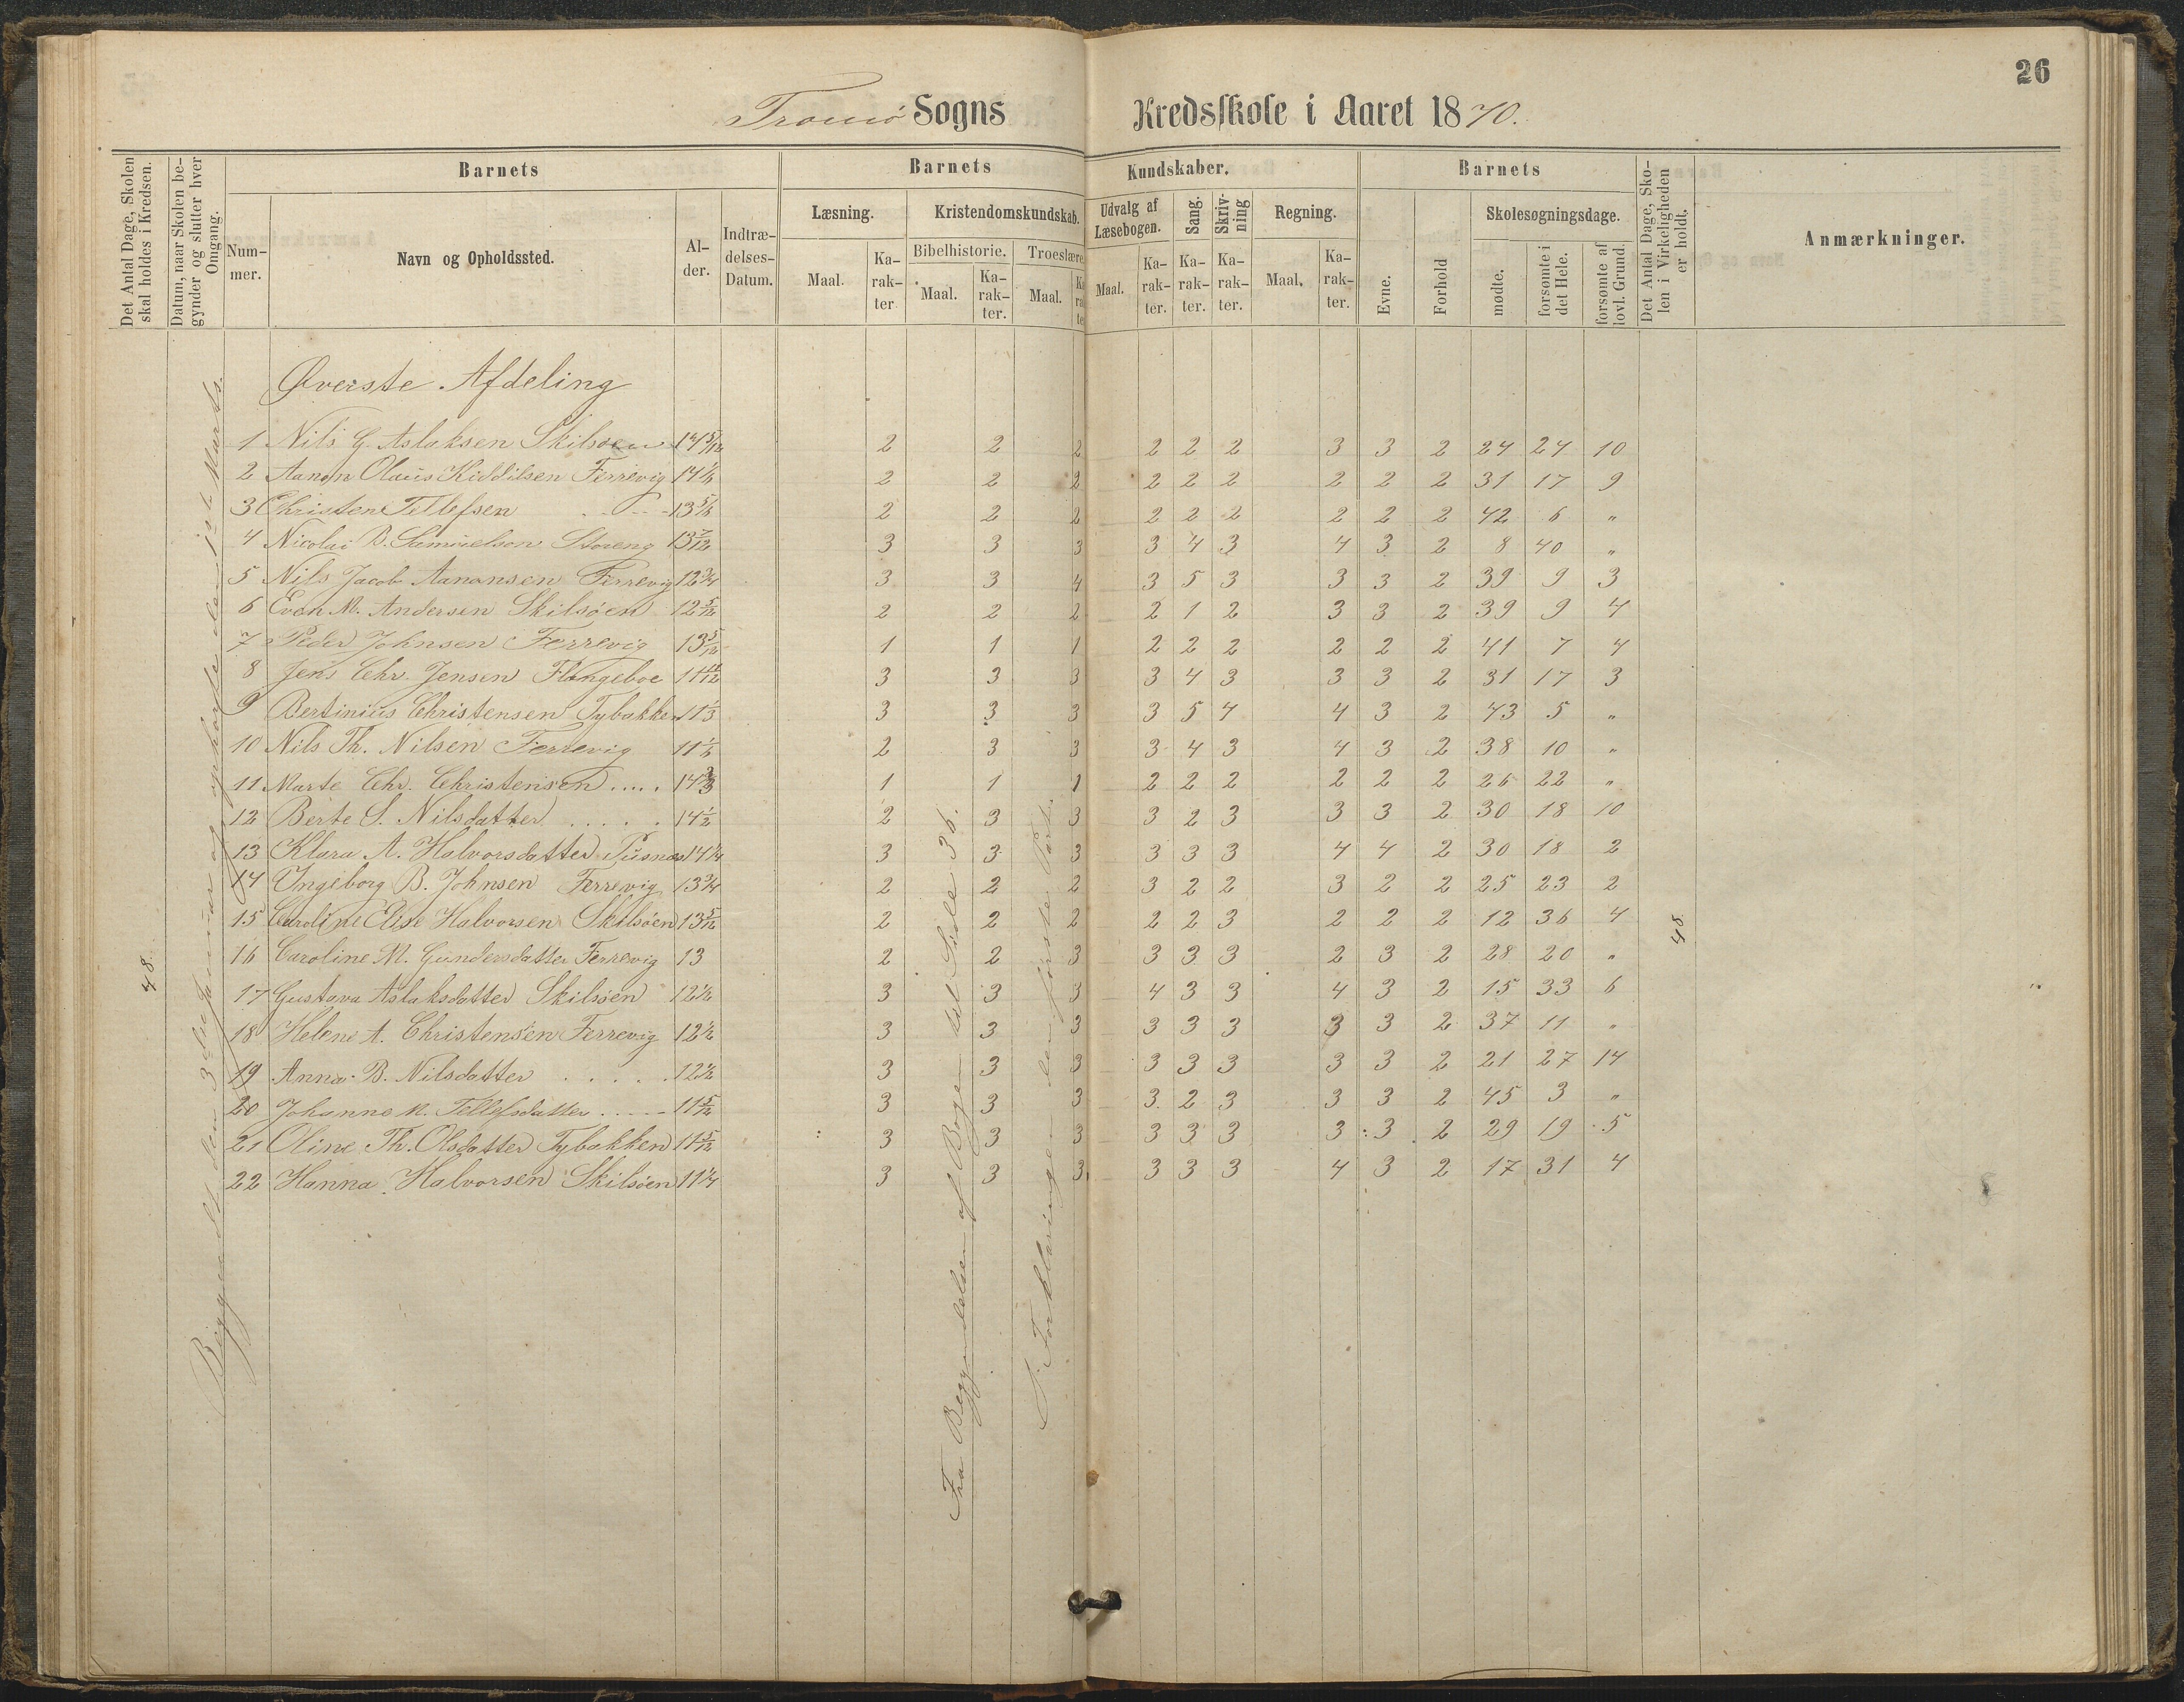 26
Tromø Sogns Kredsskole i Aaret 1870.
Det Antal Dage, Skolen skal holdes i Kredsen.
Datum, naar Skolen begynder og slutter hver Omgang.
Barnets
Barnets Kundskaber.
Barnets
Det Antal Dage, Skolen i Virkeligheden er holdt.
Anmærkninger.
Nummer. Navn og Opholdssted. Alder. Indtrædelses-Datum.
Læsning. Kristendomskundskab. Udvalg af Læsebogen. Sang. Skrivning Regning. Evne. Forhold Skolesøgningsdage.
Bibelhistorie. Troeslære
Maal. Karakter Maal. Karakter. Maal. Maal. Karakter. Karakter. Karakter. Maal. Karakter. mødte. forsømte i det Hele. forsømte af lovl. Grund.
Øverste Afdeling
1 Nils G. Aslaksen Skilsøen 14 5/12 2 2 2 2 2 2 3 3 2 24 24 10
2 Aanon Olaus Kiddilsen Ferrevig 14 1/2 2 2 2 2 2 2 2 2 2 31 17 9
3 Christen Tellefsen 13 5/6 2 2 2 2 2 2 2 2 2 42 6 "
4 Nicolai B. Samuelson Storeng 13 7/12 3 3 3 3 4 3 4 3 2 8 40 "
5 Nils Jacob Aanonsen Ferrevig 12 3/4 3 3 4 3 5 3 3 3 2 39 9 3
6 Even M. Andersen Skilsøen 12 5/12 2 2 2 2 1 2 3 3 2 39 9 4
7 Peder Johnsen Ferrevig 13 5/12 1 1 1 2 2 2 2 2 2 41 7 4
8 Jens Chr. Jensen Flangeboe 11 11/12 3 3 3 3 4 3 3 3 2 31 17 3
9 Bertinius Christensen Tybakken 11 1/3 3 3 3 3 5 4 4 3 2 43 5 "
10 Nils Th. Nilsen Ferrevig 11 1/6 2 3 3 3 4 3 4 3 2 38 10 "
11 Marte Chr. Christensen .... 14 2/3 1 1 1 2 2 2 2 2 2 26 22 "
12 Berte S. Nilsdatter ..... 14 1/2 2 3 3 3 2 3 3 3 2 30 18 10
13 Klara A. Halvorsdatter Pusnæs 14 1/4 3 3 3 3 3 3 4 4 2 30 18 2
14 Ingeborg B. Johnsen Ferrevig 13 3/4 2 2 2 3 2 2 3 2 2 25 23 2
15 Caroline Elise Halvorsen Skilsøen 13 5/12 2 2 2 2 2 3 2 2 2 12 36 4
16 Caroline M. Gundersdatter Ferrevig 13 2 2 3 3 3 3 2 3 2 28 20 "
17 Gustava Aslaksdatter Skilsøen 12 1/2 3 3 3 4 3 3 4 3 2 15 33 6
18 Helene A. Christensen Ferrevig 12 1/2 3 3 3 3 3 3 3 3 2 37 11 "
19 Anna B. Nilsdatter ..... 12 1/2 3 3 3 3 3 3 3 3 2 21 27 14
20 Johanne M. Tellefsdatter .... 11 5/12 3 3 3 3 2 3 3 3 2 45 3 "
21 Oline Th. Olsdatter Tybakken 11 5/12 3 3 3 3 3 3 3 3 2 29 19 5
22 Hanna Halvorsen Skilsøen 11 1/4 3 3 3 3 3 3 4 3 2 17 31 4
48
Begyndt den 3die Januar og ophørte den 1ste Marts.
Fra Begyndelsen af Bogen til Side 36.
I Forklaringen den første Part.
48